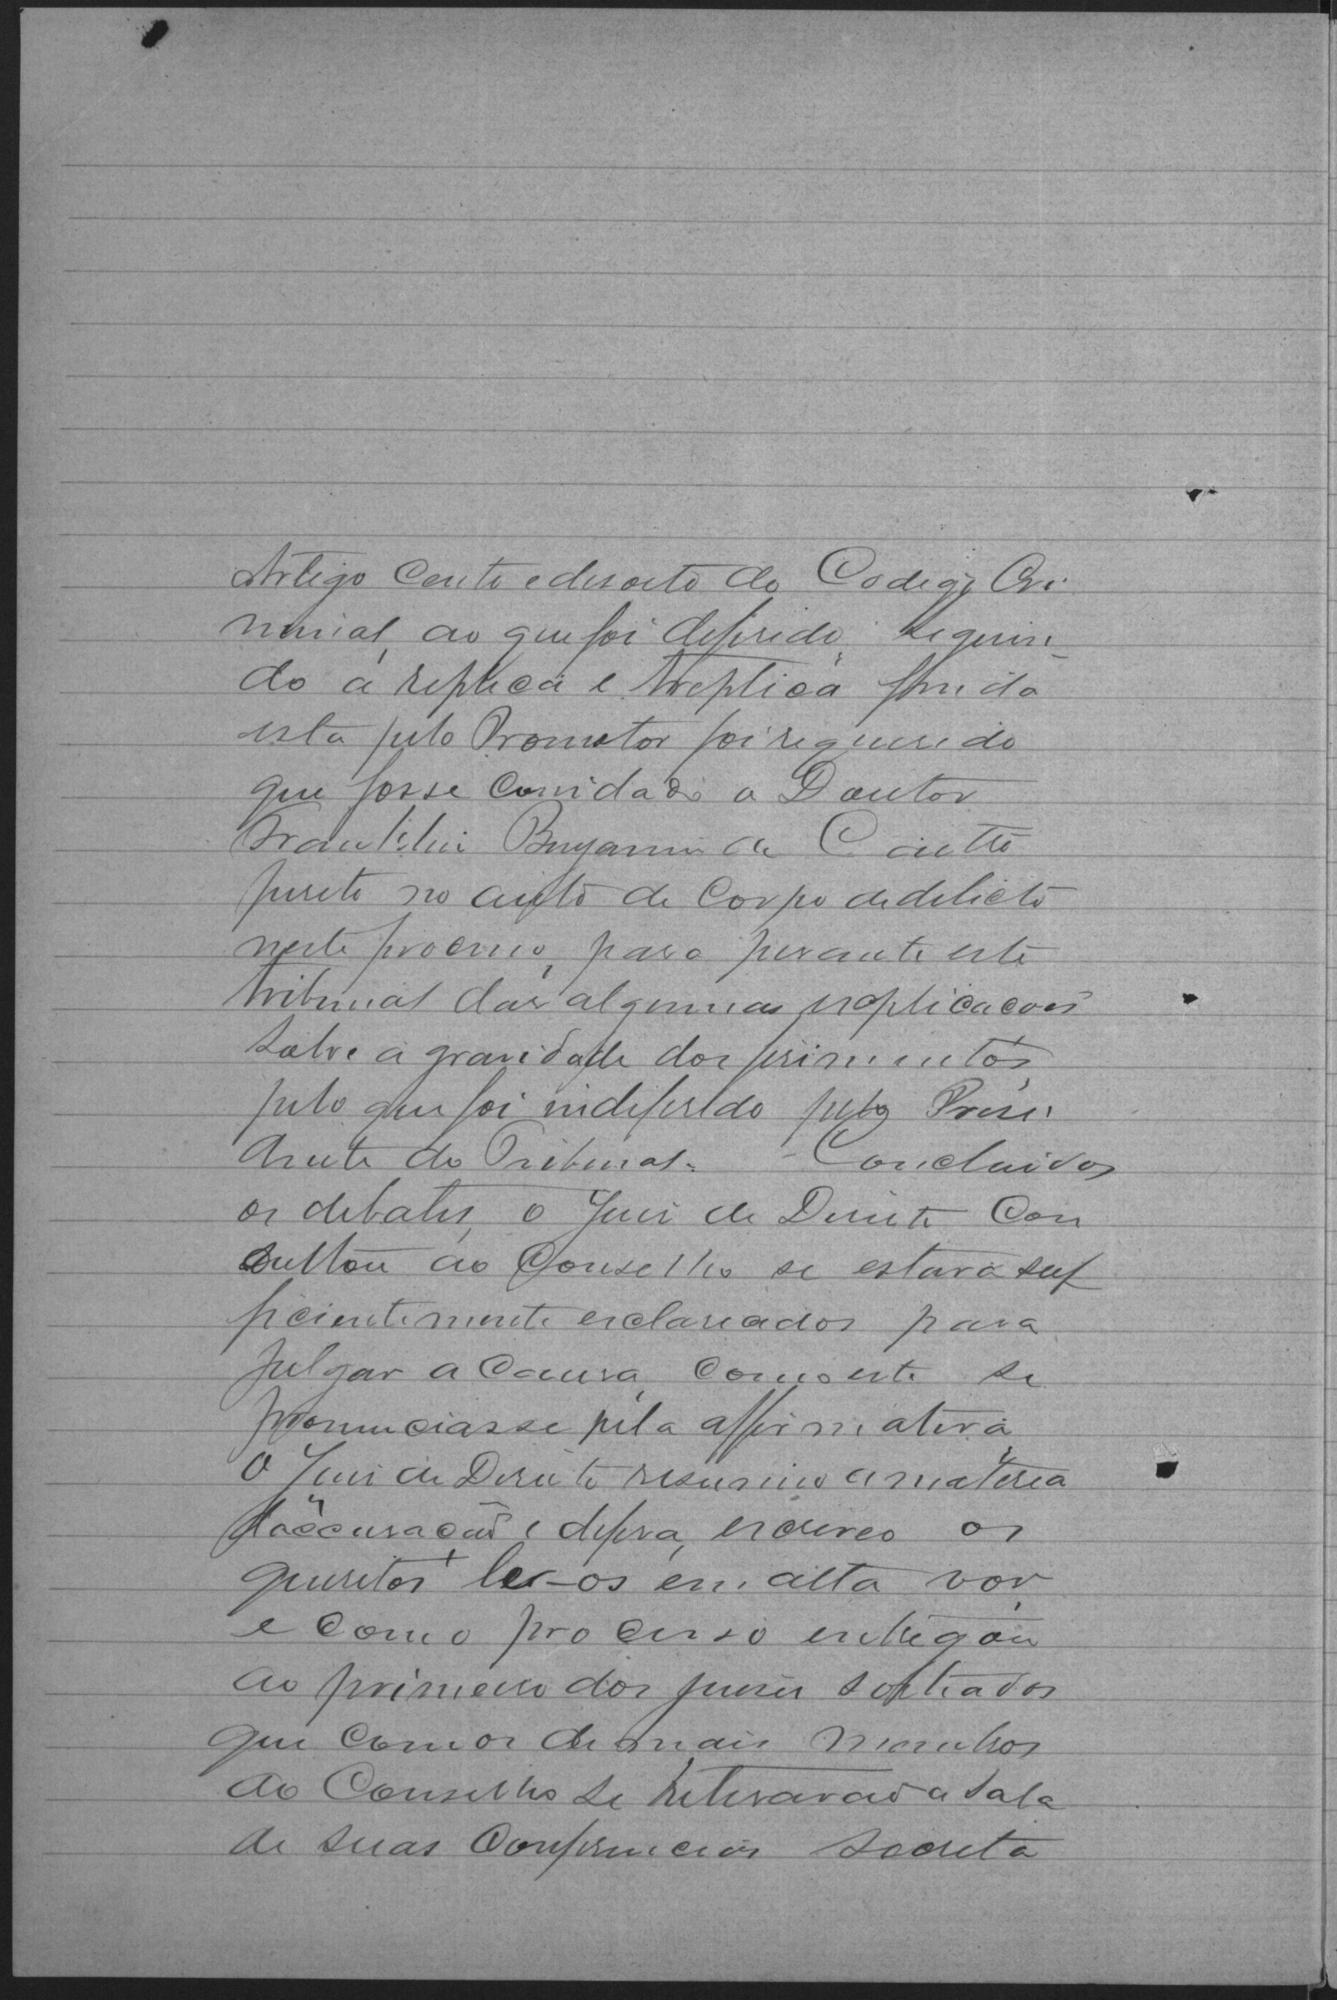 Artigo cento e desoito do Codigo Cri
minal, ao que foi deferido; seguin_
do a replica e treplica finda
esta pelo Promotor foi requerido
que fosse convidado o Doutor
Franklin Benjamin de Coutto
perito no auto de corpo de delicto
neste processo, para perante este
tribunal dar algumas explicacoes
sobre a gravidade dos ferimentos
pelo que foi indeferido pelo Presi
dente do Tribunal. Concluidos
os debates, o Juis de Direito Con
sultou ao Conselho se estava suf
ficientemente esclarecidos para
julgar a Causa, como este se
pronunciasse pela affirmativa
O Juis de Direito resumio a materia
da accusação e defesa, escreveo os
quesitos leu-os em alta vos,
e com o processo entregou
ao primeiro dos juises sorteados
que com os demais membros
do Conselho se retirarão a sala
de suas Conferencias secreta